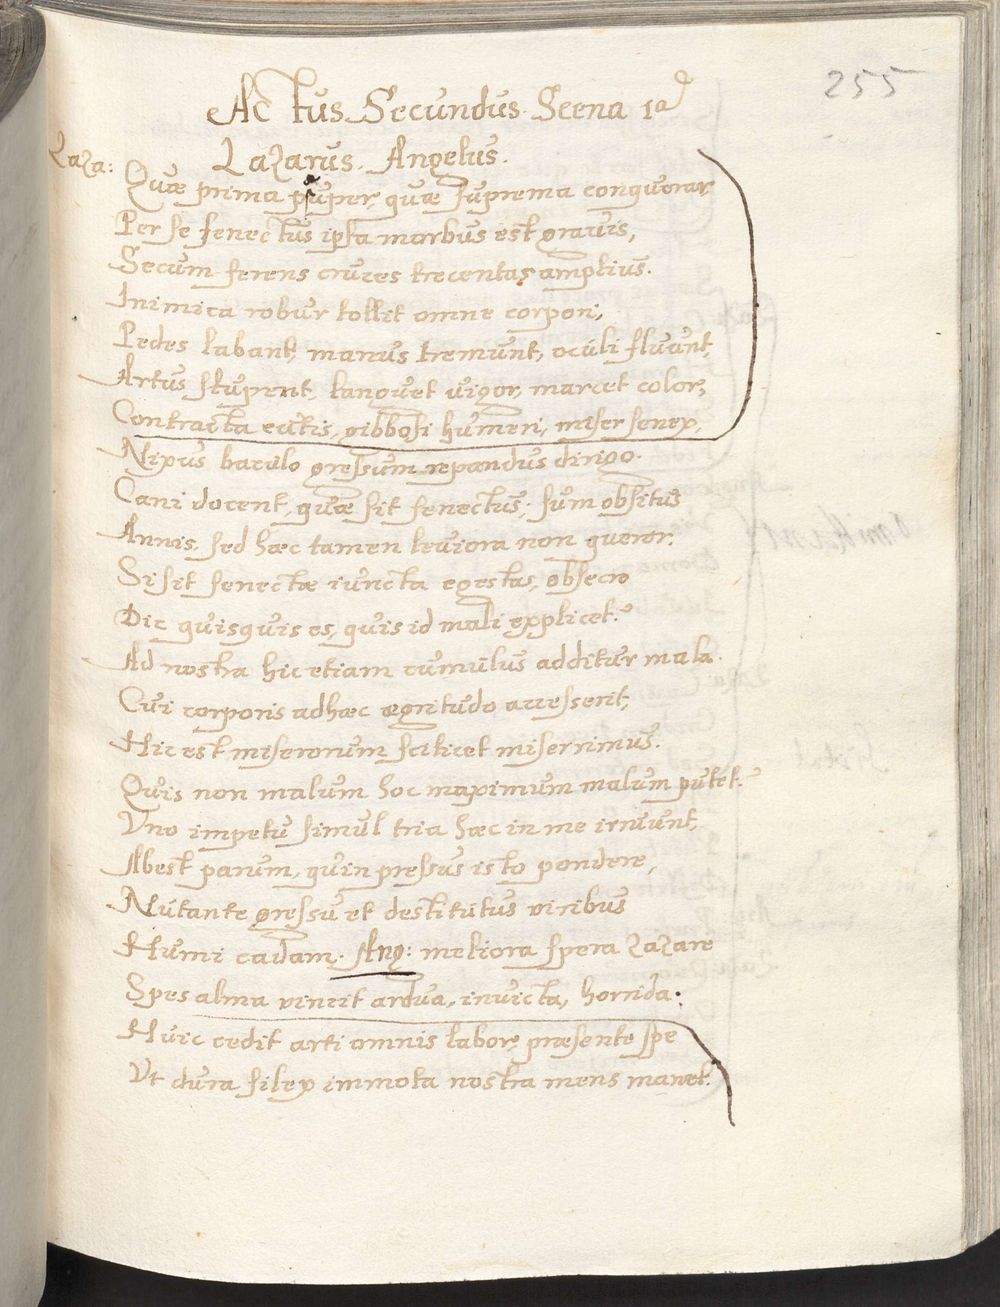 255
Actus Secundus Scena 1a
Lazarus. Angelus.
Laza: Quæ prima super, quæ suprema conquerar,
Per se senectus ipsa morbus est gravis,
Secum ferens cruces trecentas amplius.
Inimica robur tollit omne corpori,
Pedes labant, manus tremunt, oculi fluunt,
Artus stupent, languet vigor, marcet color,
Contracta cutis, gibbosi humeri, miser senex,
Nixus baculo gressum repandus dirigo.
Cani docent, quæ sit senectus, sum obsitus
Annis, sed hæc tamen leviora non queror.
Si sit senectæ iuncta egestas, obsecro
Dic quisquis es, quis id mali explicet?
Ad nostra hic etiam cumulus additur mala.
Cui corporis adhæc ægritudo accesserit,
Hic est miserorum scilicet miserrimus.
Quis non malum hoc maximum malum putet?
Uno impetu simul tria hæc in me irruunt,
Abest parum, quin pressus isto pondere,
Nutante gressu et destitutus viribus
Humi cadam. Ang: meliora spera Lazare
Spes alma vincit ardua, invicta, horrida:
Huic cedit arti omnis labor, præsente spe
Ut dura silex immota nostra mens manet.